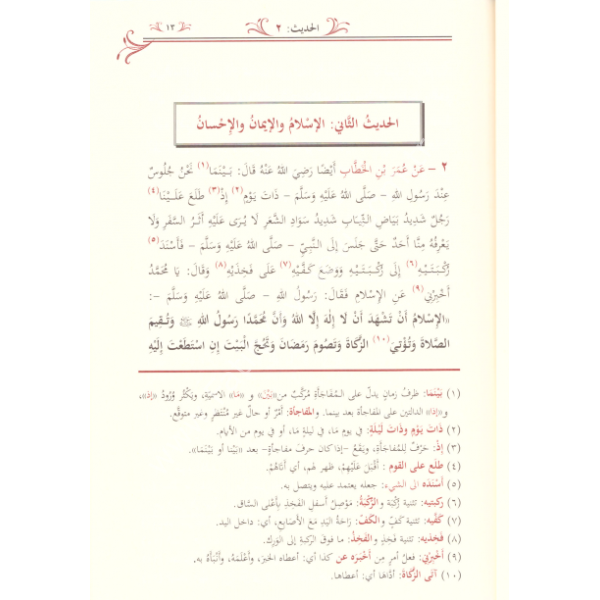 الحديث: ٢
١٣
الحديثُ الثَّاني: الإسْلامُ والإيمانُ والإحْسانُ
٢ - عَنْ عُمَرَ بْنِ الخَطَّابِ أَيْضًا رَضِيَ اللهُ عَنْهُ قَالَ: بَيْنَمَا(١) نَحْنُ جُلُوسٌ
عِنْدَ رَسُولِ اللهِ - صَلَّى اللهُ عَلَيْهِ وَسَلَّمَ - ذَاتَ يَوْمٍ(٢) إِذْ(٣) طَلَعَ عَلَيْنَا(٤)
رَجُلٌ شَدِيدُ بَيَاضِ الثِّيَابِ شَدِيدُ سَوَادِ الشَّعَرِ لَا يُرَى عَلَيْهِ أَثَرُ السَّفَرِ وَلَا
يَعْرِفُهُ مِنَّا أَحَدٌ حَتَّى جَلَسَ إِلَى النَّبِيِّ - صَلَّى اللهُ عَلَيْهِ وَسَلَّمَ - فَأَسْنَدَ(٥)
رُكْبَتَيْهِ(٦) إِلَى رُكْبَتَيْهِ وَوَضَعَ كَفَّيْهِ(٧) عَلَى فَخِذَيْهِ(٨) وَقَالَ: يَا مُحَمَّدُ
أَخْبِرْنِي(٩) عَنِ الإِسْلَامِ فَقَالَ: رَسُولُ اللهِ - صَلَّى اللهُ عَلَيْهِ وَسَلَّمَ -:
«الإِسْلَامُ أَنْ تَشْهَدَ أَنْ لَا إِلَهَ إِلَّا اللهُ وَأَنَّ مُحَمَّدًا رَسُولُ اللهِ ﷺ وَتُقِيمَ
الصَّلَاةَ وَتُؤْتِيَ(١٠) الزَّكَاةَ وَتَصُومَ رَمَضَانَ وَتَحُجَّ الْبَيْتَ إِنِ اسْتَطَعْتَ إِلَيْهِ
(١) بَيْنَمَا: ظرفُ زمانٍ يدلّ على المُفاجأةِ مُركَّبٌ من «بَيْنَ» و «مَا» الاسمِيّة، ويَكْثُر وُرُودُ «إذ»،
و«إذا» الدالتين على المفاجأة بعد بينما. والمفاجأة: أَمْرٌ أو حالٌ غير مُنْتظرٍ وغير متوقّع.
(٢) ذَاتَ يَوْمٍ وذَاتَ لَيْلَةٍ: في يومٍ مَا، في ليلةٍ مَا، أو في يوم من الأيام.
(٣) إِذْ: حَرْفٌ للمُفاجَأةِ، ويَقَعُ -إذا كان حرفَ مفاجأةٍ- بعد «بَيْنا أو بَيْنَمَا».
(٤) طَلَع على القوم: أَقْبَلَ عَلَيْهِمْ، ظهر لهم، أي أتاهُمْ.
(٥) أَسْنَدَه الى الشيء: جعله يعتمد عليه ويتصل به.
(٦) رُكبتيه: تثنية رُكْبَة والرُّكْبَةُ: مَوْصِلُ أسفلِ الفَخِذِ بأعْلى السّاق.
(٧) كَفَّيه: تثنية كَفٍّ والكَفّ: رَاحَةُ اليَدِ مَعَ الأصابعِ، أي: داخل اليد.
(٨) فَخِذيه: تثنية فَخِذٍ والفَخِذُ: ما فوق الرّكبةِ إلى الوَرِك.
(٩) أَخْبِرْنِي: فعلُ أمرٍ من أَخْبَرَه عن كذا أي: أعطاه الخبَرَ، وأَعْلَمَهُ، وأَنْبَأَهُ به.
(١٠) آتى الزَّكاةَ: أدَّاها أي: أعطاها.